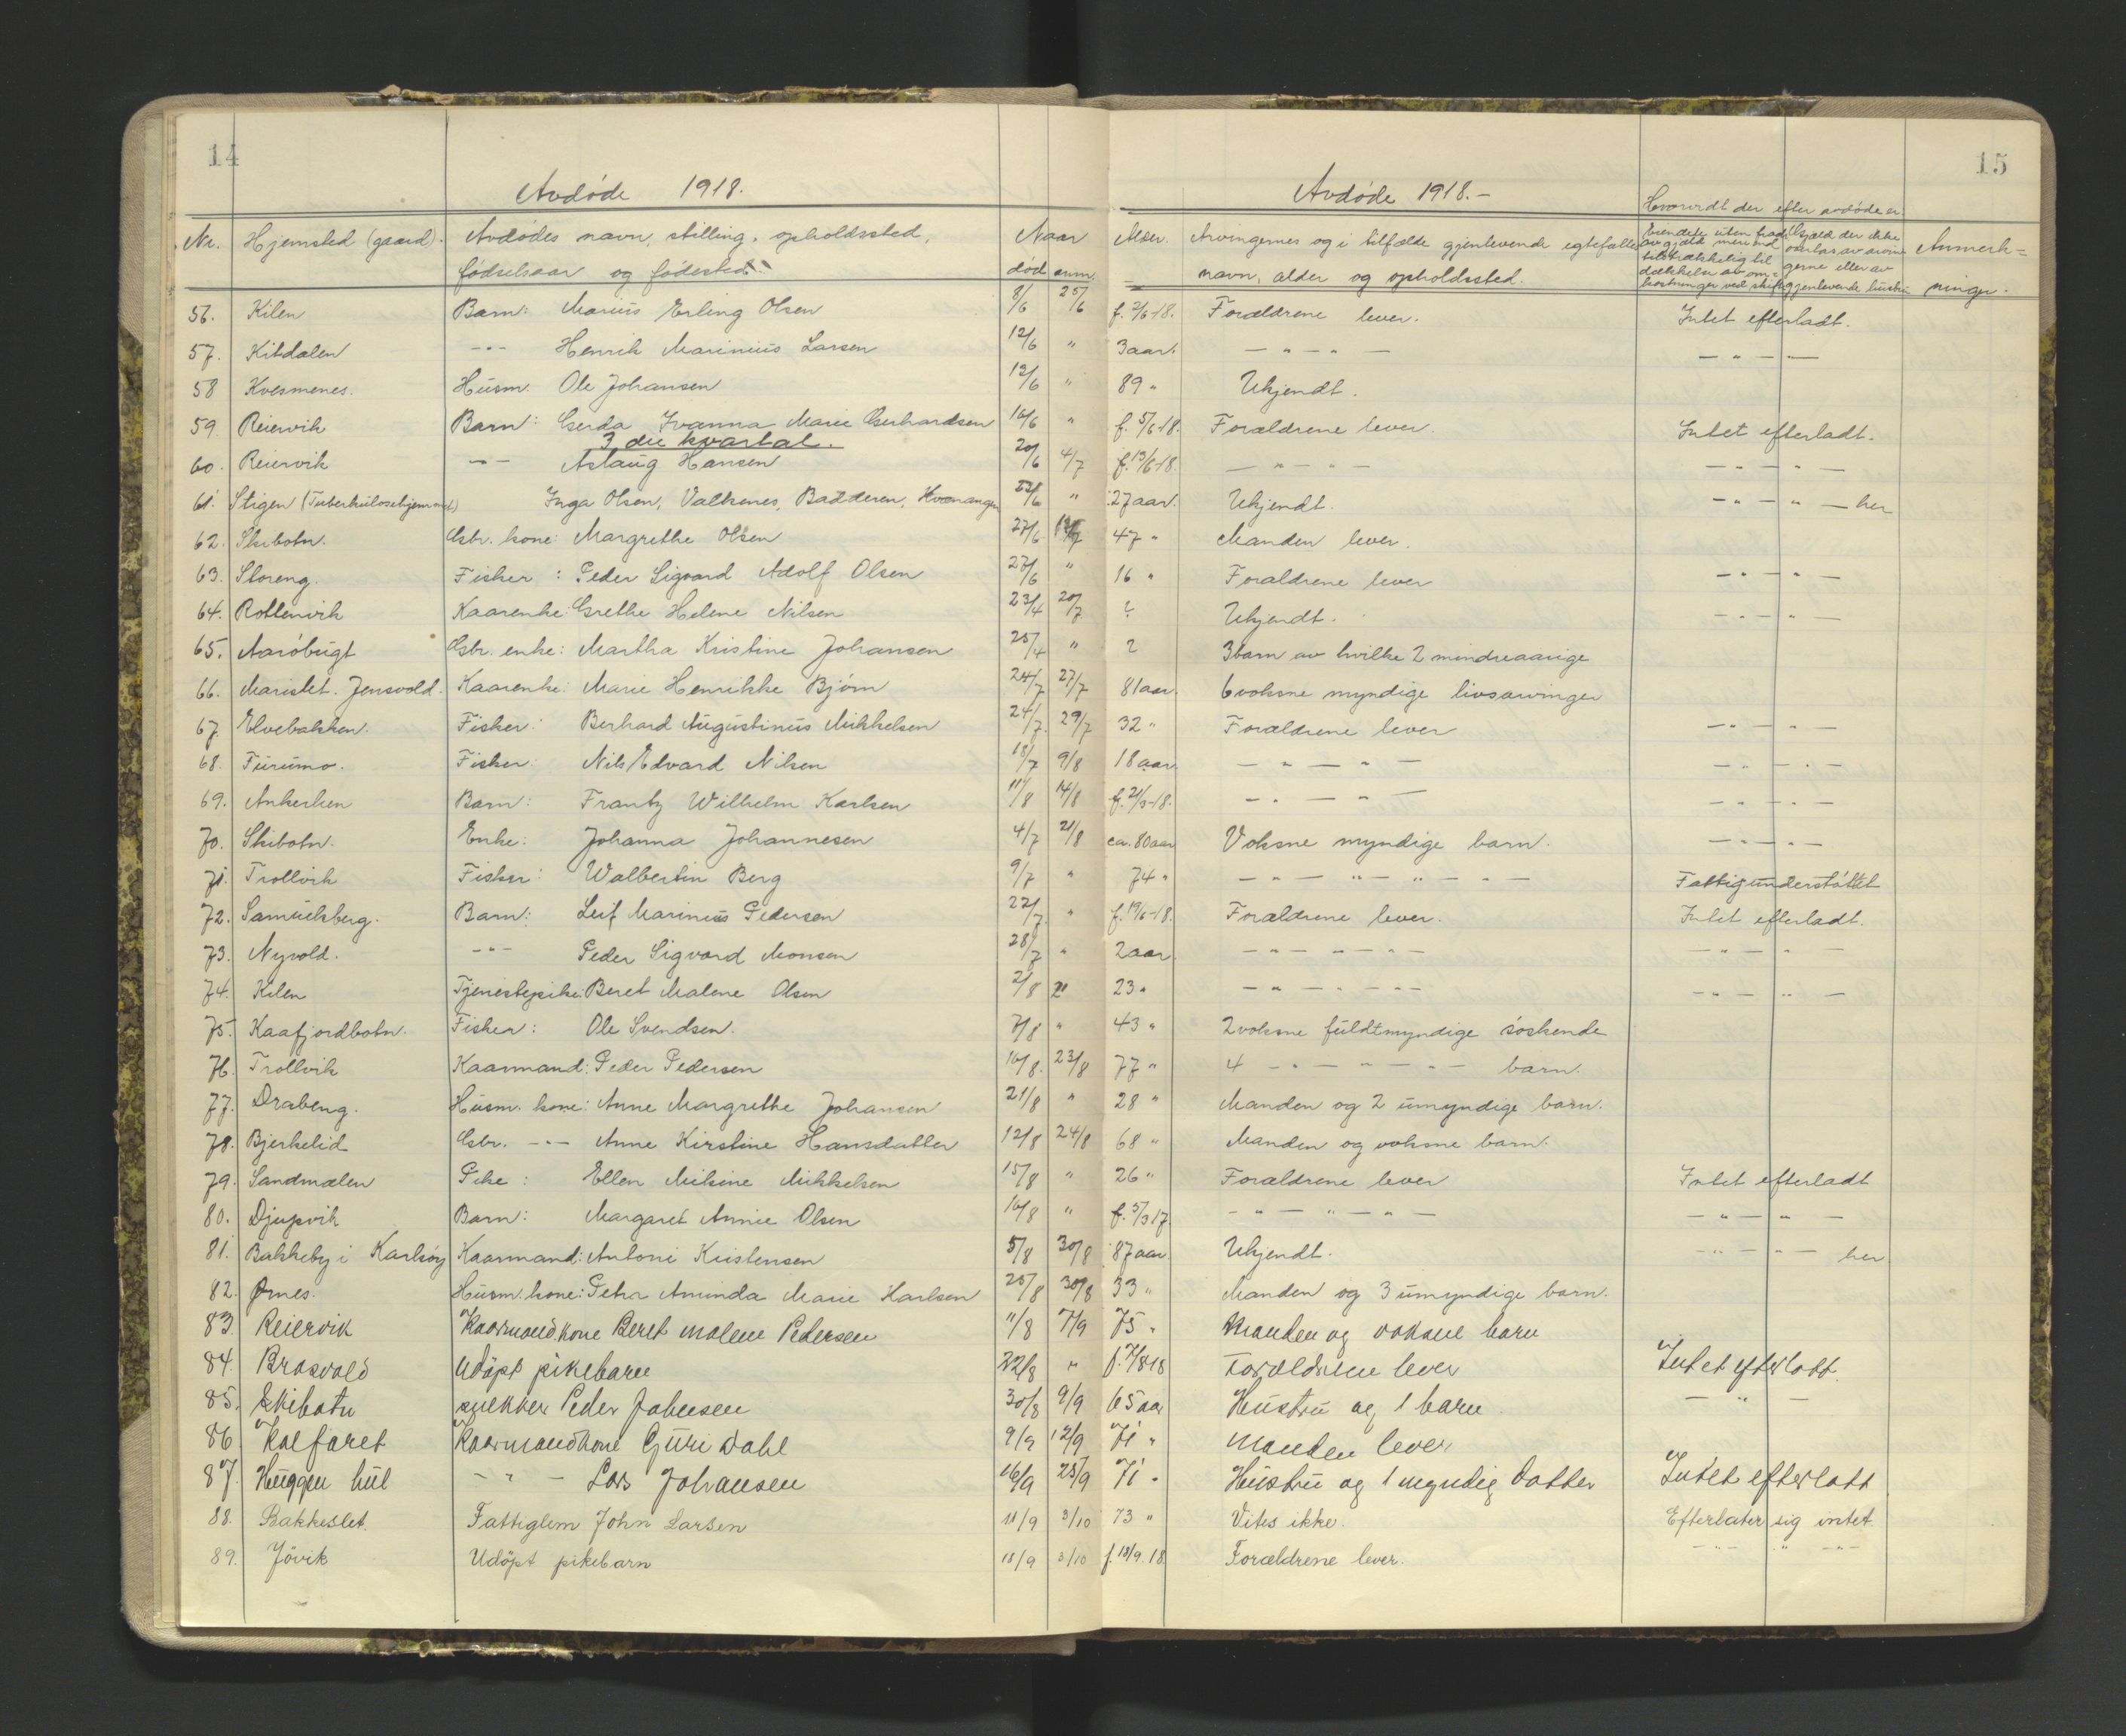 14
15
Avdøde 1918.
Avdøde 1918.-
Nr. Hjemsted (gaard). Avdødes navn, stilling, opholdssted, fødselsaar og fødested. Naar død anm. Alder. Arvingernes og i tilfælde gjenlevende egtefælles navn, alder og opholdssted. Hvorvidt der efter avdøde er Anmerk= ninger.
56. Kilen Barn: Marius Erling Olsen 8/6 25/6 f. 2/6-18. Forældrene lever. Intet efterladt.
57. Kitdalen -"- Henrik Marinius Larsen 12/6 " 3 aar. -"-"- -"-
58 Kvesmenes. Husm. Ole Johansen 12/6 " 89 " Ukjendt.
59. Reiervik Barn: Gerda Ivanna Marie Gerhardsen 16/6 " f. 5/6-18. Forældrene lever. Intet efterladt.
3die kvartal.
60. Reiervik -"- Aslaug Hansen 20/6 4/7 f. 13/6-18. -"-"- -"-"-
61. Stigen (Tuberkulosehjemmet) Inga Olsen, Valhenes, Badderen, Kvænangen " 27 aar. Ukjendt. -"-"- her
62. Skibotn. Gbr. kone: Margrethe Olsen 27/6 47 " Manden lever.
63. Storeng. Fisher: Peder Sigvard Adolf Olsen 27/6 " 16 " Forældrene lever -"-"-
64. Rottenvik Kaarenke: Grethe Helene Nilsen 23/4 20/7 ? Ukjendt. -"-"-
65. Aarøbugt Gbr. enke: Martha Kristine Johansen 25/4 " ? 3 barn av hvilke 2 mindreaarige
66. Marislet. Jensvold. Kaarenke: Marie Henrikke Bjørn 24/7 27/7 81 aar. 6 voksne myndige livsarvinger
67. Elvebakken. Fisker: Berhard Augustinus Mikkelsen 24/7 29/7 32 " Forældrene lever -"-"-
68. Furumo. Fisker: Nils Edvard Nilsen 18/7 9/8 18 aar. -"-"- -"-"-
69. Ankerlien Barn: Frantz Wilhelm Karlsen 11/8 14/8 f. 21/3-18. -"-"- -"-"-
70. Skibotn. Enke: Johanna Johannesen 4/7 21/8 ca. 80 aar Voksne myndige barn. -"-"-
71. Trollvik Fisker: Walbertin Berg 9/7 " 74 " -"-"-"-"- Fattigunderstøttet
72. Samuelsberg. Barn: Leif Marinius Pedersen 22/7 " f. 19/6-18. Forældrene lever. Intet efterladt.
73. Nyvold. -"- Peder Sigvard Monsen 28/7 " 2 aar -"-"-"- -"-"-
74. Kilen Tjenestepike: Beret Malene Olsen 2/8 23 " -"-"-"- -"-"-
75. Kaafjordbotn. Fisker: Ole Svendsen. 7/8 " 43 " 2 voksne fuldtmyndige søskende
76. Trollvik Kaarmand: Peder Pedersen 16/8. 23/8 77 " 4 -"-"-"- barn.
77. Drabeng. Husm. kone: Anne Margrethe Johansen 21/8 " 28 " Manden og 2 umyndige barn.
78. Bjerkelid Gbr. -"- Anne Kirstine Hansdatter 12/8 24/8 68 " Manden og voksne barn.
79. Sandmælen Pike: Ellen Milsine Mikkelsen 15/8 " 26 " Forældrene lever Intet efterladt
80. Djupvik Barn: Margaret Annie Olsen 16/8 " f. 5/3 17 -"-"-"- -"-"-
81. Bakkeby i Karlsøy Kaarmand: Antoni Kristensen 5/8 30/8 87 aar Ukjendt. -"-"- her
82. Ørnes. Husm. kone: Petra Aminda Marie Karlsen 25/8 30/8 33 " Manden og 3 umyndige barn.
83. Reiervik Kaarmandkone Beret Malene Pedersen 11/8 7/9 75 " Manden og voksne barn
84. Brasvold Udøpt pikebarn 22/8 " f. 7/8 18 Forældrene lever Intet efterlatt.
85. Skibotn Peder Johnsen 30/8 9/9 65 aar Hustru og 1 barn -"-
86 Kalfaret Kaarmandkone Guri Dahl 9/9 12/9 71 " Manden lever
87. Huggenhul -"- Lars Johansen 16/9 25/9 71 " Hustru og 1 myndig datter Intet efterlatt
88. Bakkeslet. Fattiglem John Larsen 11/9 3/10 73 " Vites ikke. Efterlater sig intet.
89. Jövik Udöpt pikebarn 18/9 3/10 f. 18/9. 18. Forældrene lever. -"-"-"-